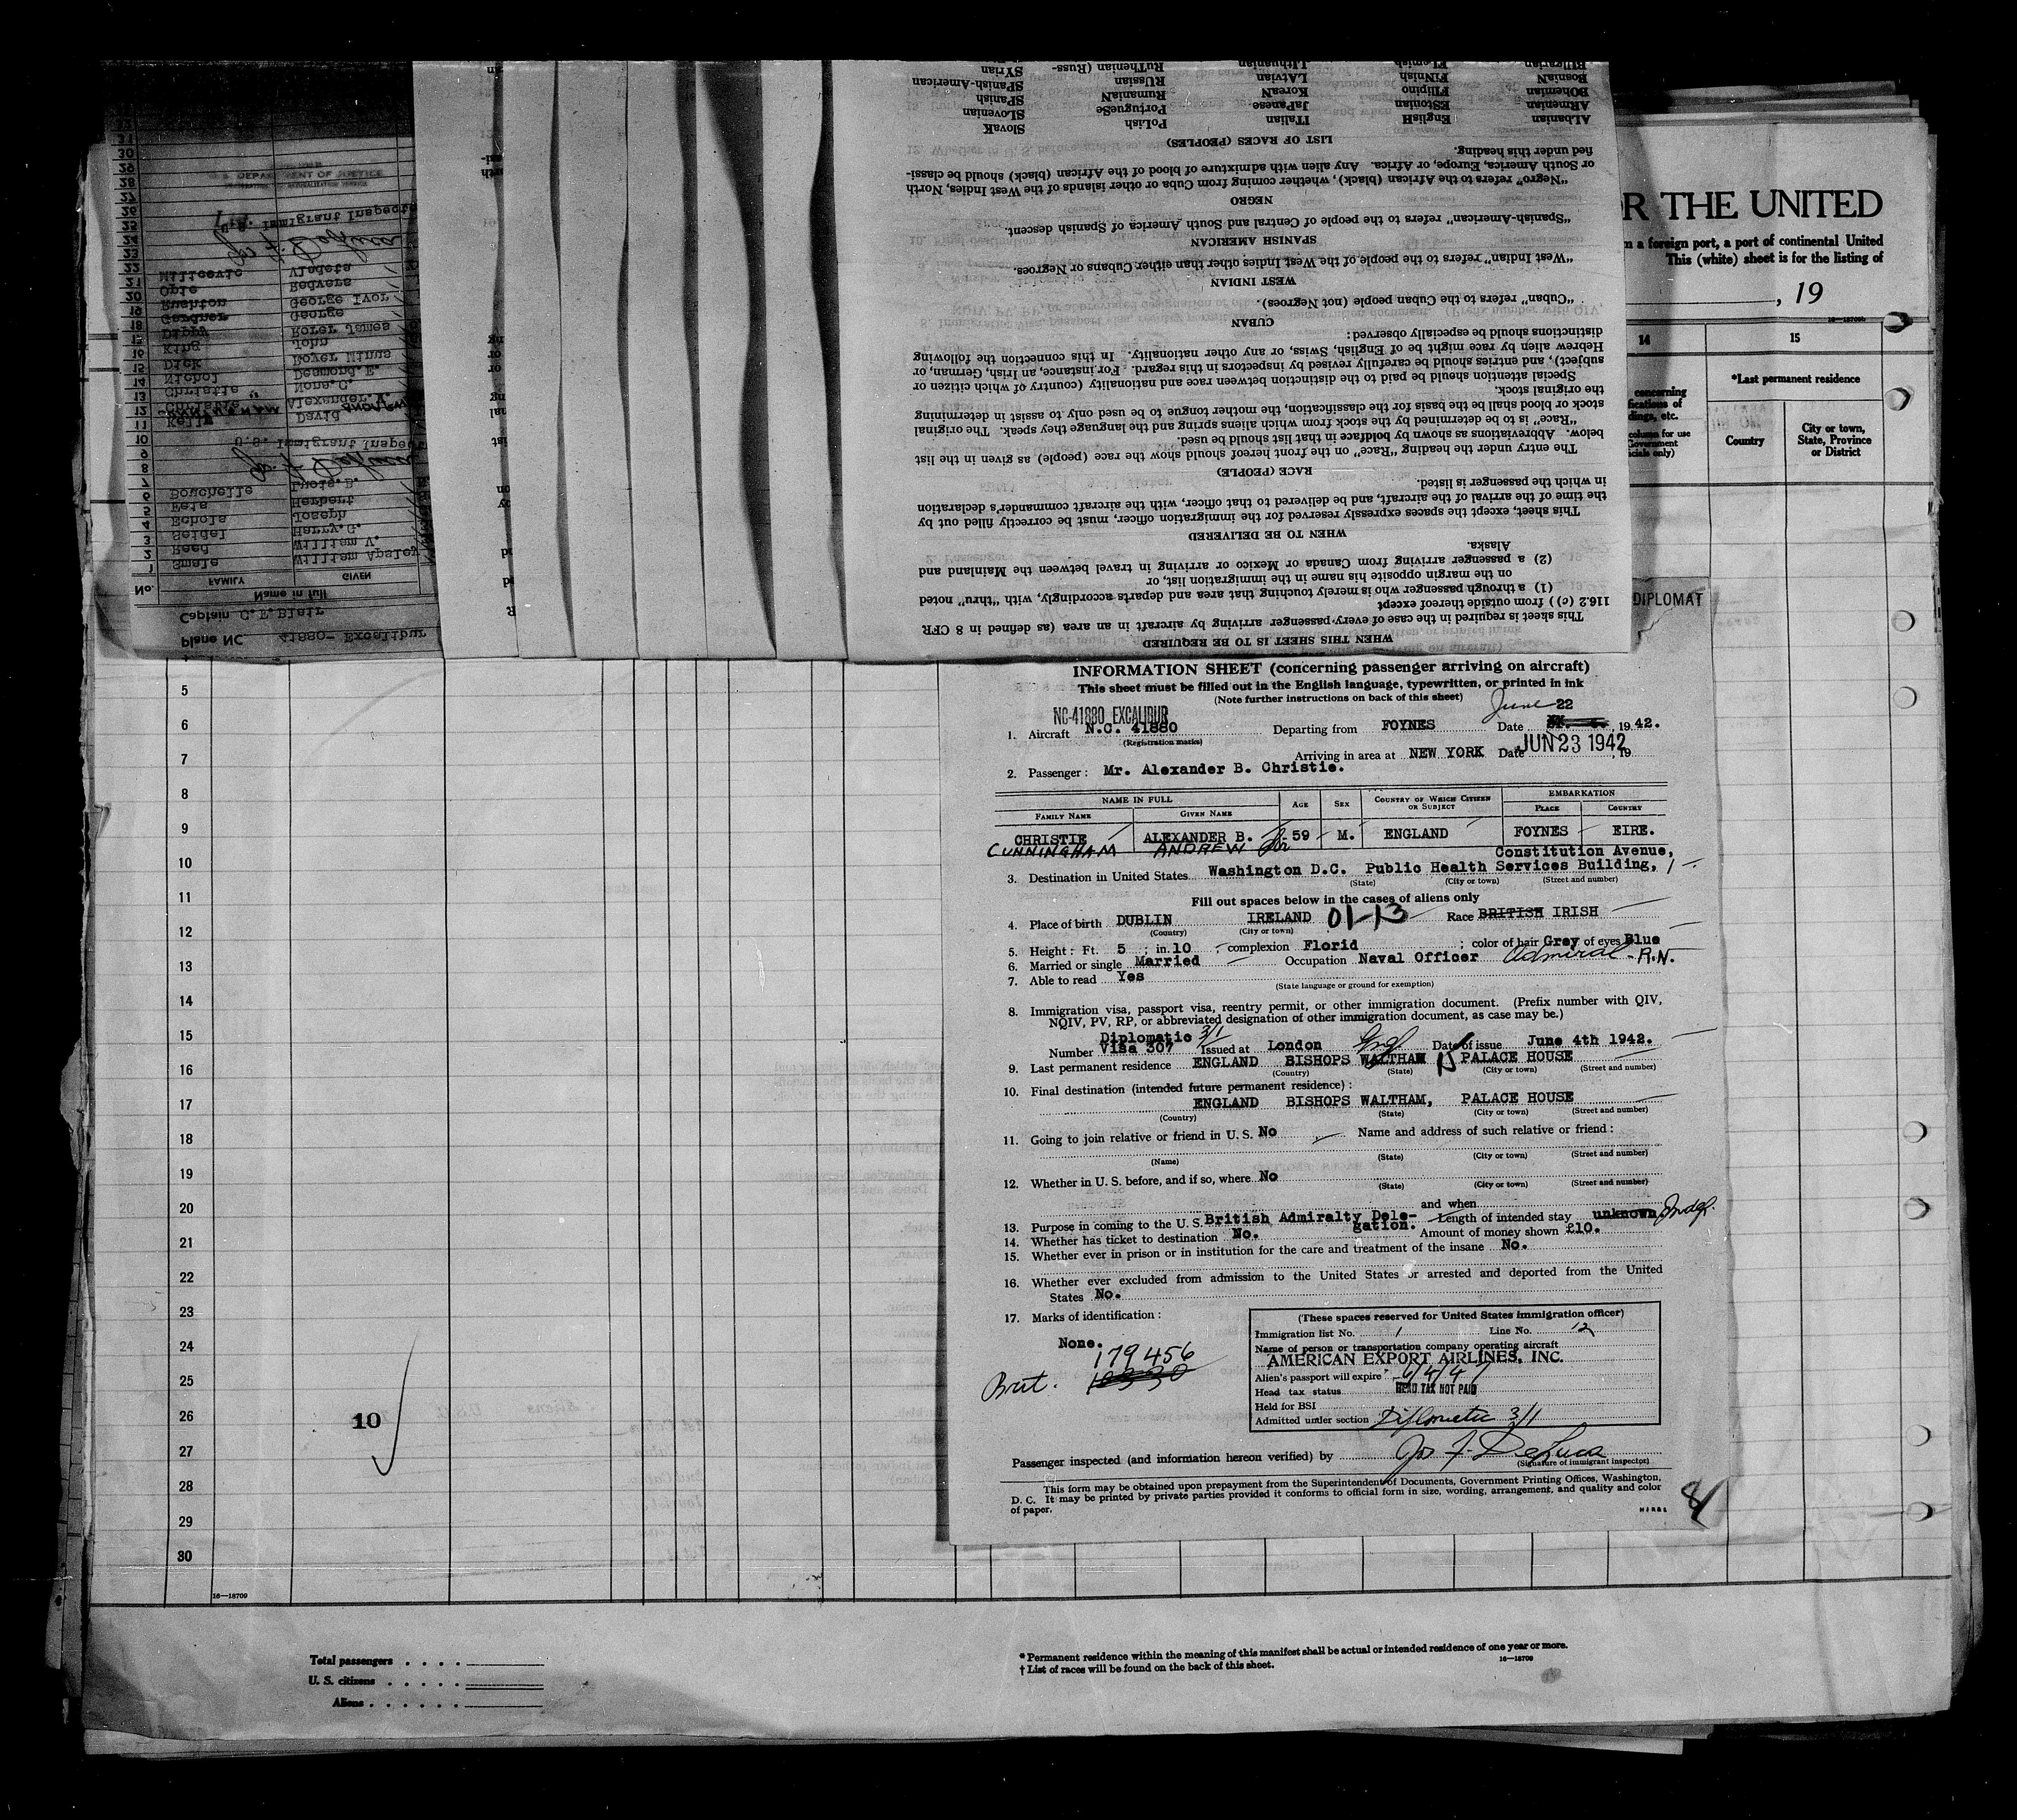 This sheet is required in the case of every passenger arriving by aircraft in an area (as defined in 8 CFR
116.2 (c)) from outside thereof except
WHEN THIS SHEET IS TO BE REQUIRED
(1) a through passenger who is merely touching that area and departs accordingly, with "thru" noted
on the margin opposite his name in the immigration list, or
(2) a passenger arriving from Canada or Mexico or arriving in travel between the Mainland and
Alaska.
WHEN TO BE DELIVERED
This sheet, except the spaces expressly reserved for the immigration officer, must be correctly filled out by
the time of the arrival of the aircraft, and be delivered to that officer, with the aircraft commander's declaration
in which the passenger is listed.
RACE (PEOPLE)
The entry under the heading "Race" on the front hereof should show the race (people) as given in the list
below. Abbreviations as shown by boldface in that list should be used.
"Race" is to be determined by the stock from which aliens spring and the language they speak. The original
stock or blood shall be the basis for the classification, the mother tongue to be used only to assist in determining
the original stock.
Special attention should be paid to the distinction between race and nationality (country of which citizen or
subject), and entries should be carefully revised by inspectors in this regard. For instance, an Irish, German, or
Hebrew alien by race might be of English, Swiss, or any other nationality. In this connection the following
distinctions should be especially observed:
CUBAN
"Cuban" refers to the Cuban people (not Negroes).
WEST INDIAN
"West Indian" refers to the people of the West Indies other than either Cubans or Negroes.
SPANISH AMERICAN
"Spanish-American" refers to the people of Central and South America of Spanish descent.
NEGRO
"Negro" refers to the African (black), whether coming from Cuba or other islands of the West Indies, North
or South America, Europe, or Africa. Any alien with admixture of blood of the African (black) should be classi-
fied under this heading.
LIST OF RACES (PEOPLES)
AlBanian EnglisH ITalian PoLish SlovaK
ARmenian EStonian JaPanese PortugueSe SLovenian
BOhemian FIlipino KoreaN RumaniaN SPanish
BosniaN FINnish LAtvian RUssian SPanish-American
BUlgarian Flemish LIthuanian RuThenian (Russ- SYrian
Plane NC 41880- Excalibur
Captain C.F.Blair
No. Name in full
FAMILY GIVEN
1 Smale William Apsley
2 Reed William V.
3 Seidel Harry.G.
4 Echols Joseph
5 Feis Herbert
6 Bouchelle Louis.B.
7
8
9 U.S. Immigrant Inspect
10
11 Kelly David
12 Christie Alexander
CUNNINGHAM ANDREW
13 Christie Nona.C.
14 Nichol Desmond.E.
15 Dick Royer Minus
16 King John
17 Dippy Rorer James
18 Gardner George
19 Rushton George Ivor
20 Opie Redvers
21 Milicevic Vladeta
22
23
24
25 U.S. Immigrant Inspecto
26
27
28
29 U.S. DEPARTMENT OF JUSTICE
30
31
R THE UNITED
m a foreign port, a port of continental United
This (white) sheet is for the listing of
, 19
14 15
concerning
*Last permanent residence
Country
City or town, State, Province or District
DIPLOMAT
INFORMATION SHEET (concerning passenger arriving on aircraft)
This sheet must be filled out in the English language, typewritten, or printed in ink
(Note further instructions on back of this sheet)
NC-41880 EXCALIBUR
June 22
1. Aircraft N.C. 41880 Departing from FOYNES Date , 19 42.
(Registration marks)
Arriving in area at NEW YORK Date JUN 23 1942, 19
2. Passenger : Mr. Alexander B. Christie.
NAME IN FULL AGE SEX COUNTRY OF WHICH CITIZEN OR SUBJECT EMBARKATION
FAMILY NAME GIVEN NAME PLACE COUNTRY
CHRISTIE ALEXANDER B. 59 M. ENGLAND FOYNES EIRE.
CUNNINGHAM ANDREW
Constitution Avenue,
3. Destination in United States Washington D.C. Public Health Services Building,
(State) (City or town) (Street and number)
Fill out spaces below in the cases of aliens only
4. Place of birth DUBLIN IRELAND 01-13 Race BRITISH IRISH
(Country) (City or town)
5. Height : Ft. 5 ; in. 10 ; complexion Florid ; color of hair Grey of eyes Blue
6. Married or single Married Occupation Naval Officer Admiral - R.N.
7. Able to read Yes
(State language or ground for exemption)
8. Immigration visa, passport visa, reentry permit, or other immigration document. (Prefix number with QIV,
NQIV, PV, RP, or abbreviated designation of other immigration document, as case may be.)
Diplomatic 3/1
Number Visa 307 Issued at London Engl Date of issue June 4th 1942.
9. Last permanent residence ENGLAND BISHOPS WALTHAM PALACE HOUSE
(Country) (State) (City or town) (Street and number)
10. Final destination (intended future permanent residence) :
ENGLAND BISHOPS WALTHAM, PALACE HOUSE
(Country) (State) (City or town) (Street and number)
11. Going to join relative or friend in U. S. No Name and address of such relative or friend :
(Name) (State) (City or town) (Street and number)
12. Whether in U. S. before, and if so, where No
(State) (City or town) (Street and number)
and when
13. Purpose in coming to the U. S. British Admiralty Dele-gation. Length of intended stay unknown Indef.
14. Whether has ticket to destination No. Amount of money shown £10.
15. Whether ever in prison or in institution for the care and treatment of the insane No.
16. Whether ever excluded from admission to the United States or arrested and deported from the United
States No.
17. Marks of identification :
None.
179456
Brit.
(These spaces reserved for United States immigration officer)
Immigration list No. 1 Line No. 12
Name of person or transportation company operating aircraft
AMERICAN EXPORT AIRLINES, INC.
Alien's passport will expire 6/4/47
Head tax status HEAD TAX NOT PAID
Held for BSI
Admitted under section Diplomatic 3/1
Passenger inspected (and information hereon verified) by Jos F. DeLuca
(Signature of immigrant inspector)
This form may be obtained upon prepayment from the Superintendent of Documents, Government Printing Offices, Washington,
D. C. It may be printed by private parties provided it conforms to official form in size, wording, arrangement, and quality and color
of paper.
5
6
7
8
9
10
11
12
13
14
15
16
17
18
19
20
21
22
23
24
25
26
10
27
28
29
30
16—18709
Total passengers . . . .
U. S. citizens . . . . .
Aliens . . . . . .
* Permanent residence within the meaning of this manifest shall be actual or intended residence of one year or more.
† List of races will be found on the back of this sheet.
16—18709